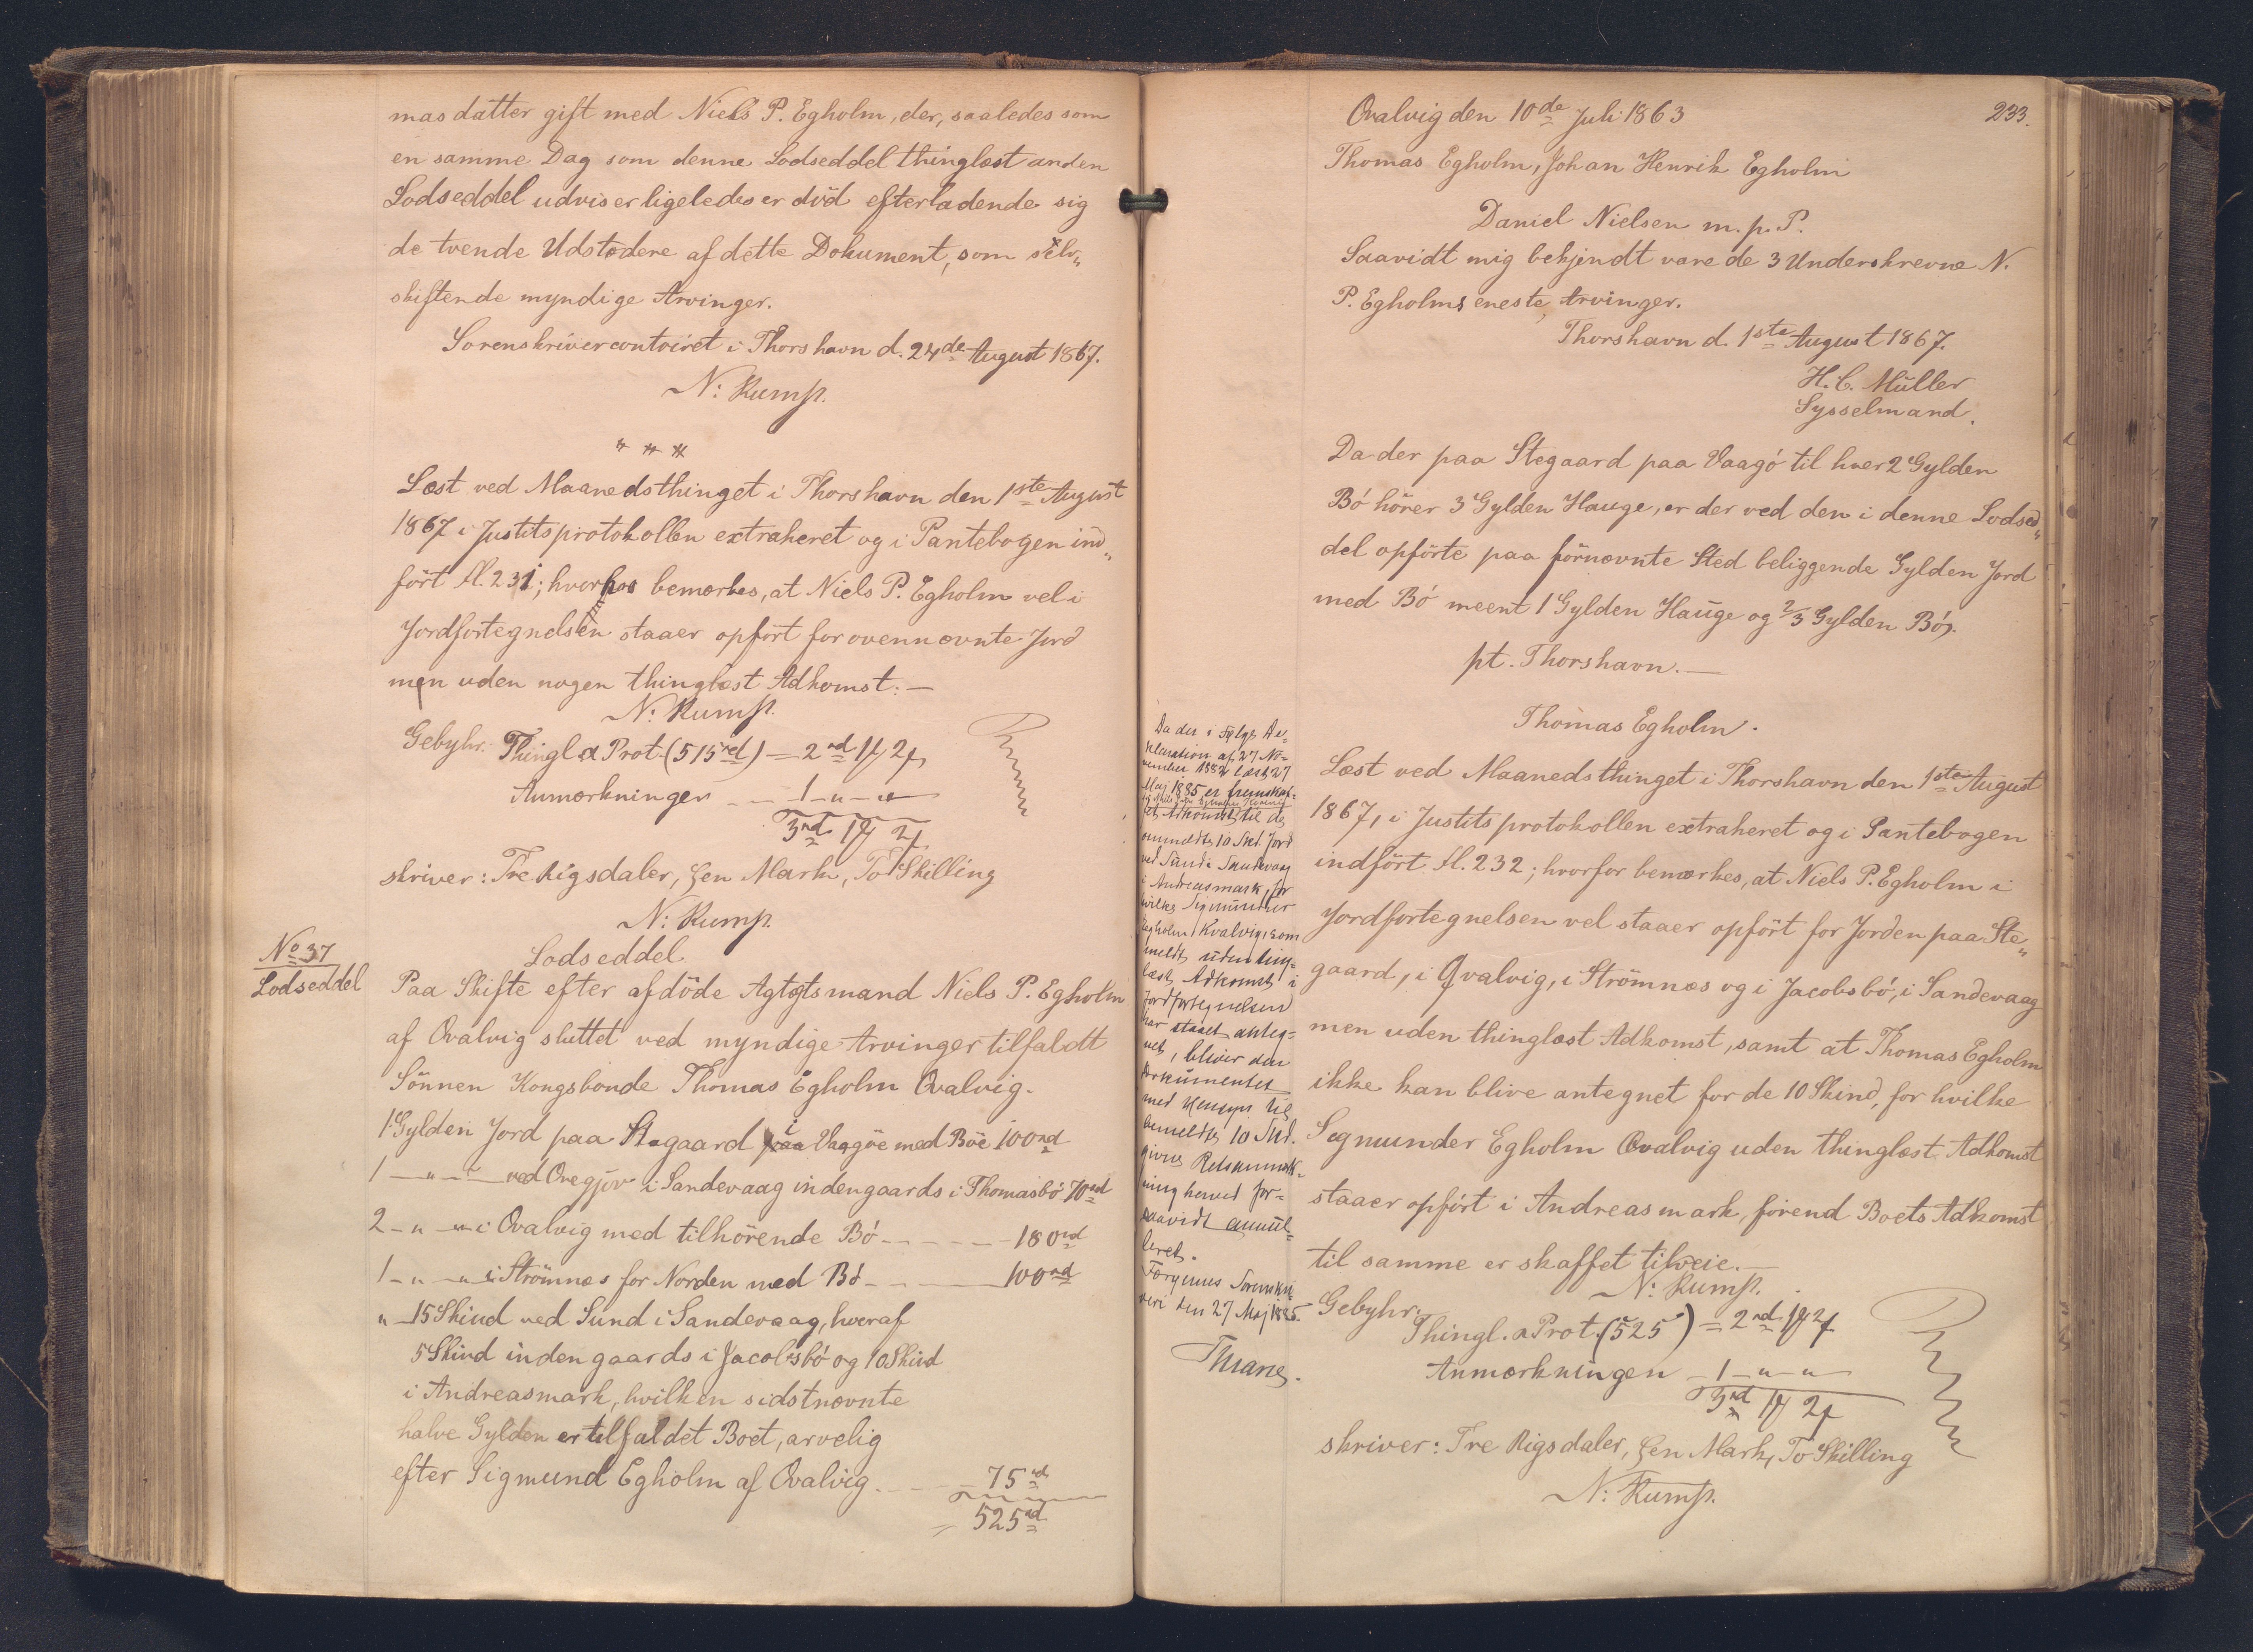 mas datter gift med Niels P. Egholm, der, saaledes som
en samme Dag som denne Lodseddel thinglæst anden
Lodseddel udviser ligeledes er död efterladende sig
de tvende Udstedere af dette Dokument, som selv„
skiftende myndige Arvinger.
Sorenskrivercontoiret i Thorshavn d. 24de August 1867.
N: Rump.
Læst ved Maanedsthinget i Thorshavn den 1ste August
1867 i Justitsprotokollen extraheret og i Pantebogen ind„
fört fl. 231; hvorhos bemærkes, at Niels P. Egholm vel i
Jordfortegnelsen staaer opfört for ovennævnte Jord
men uden nogen thinglæst Adkomst. —
N: Rump.
Gebyhr: Thingl. a Prot. (515 rd) = 2 rd 1 ƒ 2 ƒ
Anmærkningen — 1 — „ — „
3 rd 1 ƒ 2 ƒ
skriver: Tre Rigsdaler, Een Mark, To Skilling
N: Rump.
No 37
Lodseddel
Lodseddel
Paa Skifte efter afdöde Agtögtsmand Niels P. Egholm
af Qvalvig sluttet ved myndige Arvinger tilfaldt
Sönnen Kongsbonde Thomas Egholm Qvalvig.
1 Gylden Jord paa Stegaard i Vaagöe med Böe 100 rd
1 — „ — „ — ved Ovegjov i Sandevaag indengaards i Thomasbö 70 rd
2 — „ — „ i Qvalvig med tilhörende Bö — — — 180 rd
1 — „ — „ i Strömnæs for Norden med Bö — — 100 rd
„ 15 Skind ved Sund i Sandevaag, hvoraf
5 Skind indengaards i Jacobsbö og 10 Skind
i Andreasmark, hvilken sidstnævnte
halve Gylden er tilfaldet Boet, arvelig
efter Sigmund Egholm af Qvalvig. — — 75 rd
= 525 rd
233.
Qvalvig den 10de Juli 1863
Thomas Egholm, Johan Henrik Egholm
Daniel Nielsen m. p. P.
Saavidt mig bekjendt vare de 3 Underskrevne N.
P. Egholms eneste Arvinger.
Thorshavn d. 1ste August 1867.
H. C. Müller
Sysselmand.
Da der paa Stegaard paa Vaagö til hver 2 Gylden
Bö hörer 3 Gylden Hauge, er der ved den i denne Lodsed„
del opförte paa förnævnte Sted beliggende Gylden Jord
med Bö meent 1 Gylden Hauge og 2/3 Gylden Bö.
pt. Thorshavn. —
Thomas Egholm.
Læst ved Maanedsthinget i Thorshavn den 1ste August
1867, i Justitsprotokollen extraheret og i Pantebogen
indfört fl. 232; hvorfor bemærkes, at Niels P. Egholm i
Jordfortegnelsen vel staaer opfört for Jorden paa Ste„
gaard, i Qvalvig, i Strömnæs og i Jacobsbö, i Sandevaag
men uden thinglæst Adkomst, samt at Thomas Egholm
ikke kan blive antegnet for de 10 Skind, for hvilke
Segmunder Egholm Qvalvig uden thinglæst Adkomst
staaer opfört i Andreasmark, förend Boets Adkomst
til samme er skaffet tilveie. —
N: Rump.
Gebyhr:
Thingl. a Prot. (525) = 2 rd 1 ƒ 2 ƒ
Anmærkningen — 1 — „ — „
3 rd 1 ƒ 2 ƒ
skriver: Tre Rigsdaler, Een Mark, To Skilling
N: Rump.
Da der i Følge De-
klaration af 27 No-
vember 1882 læst 27
Maj 1885 er fremskaf-
fet Adkomst til de
ommeldte 10 Skd. Jord
ved Sund i Sandevaag
i Andreasmark, for
hvilke Sigmunder
Egholm, Kvalvig, som
meldt uden ting-
læst Adkomst i
Jordfortegnelsen
har staaet anteg-
net, bliver den
Dokumentet
med Hensyn til
bemeldte 10 Skd.
givne Retsanmærk-
ning herved for-
saavidt annul-
leret.
Færøernes Sorenskri-
veri den 27 Maj 1885.